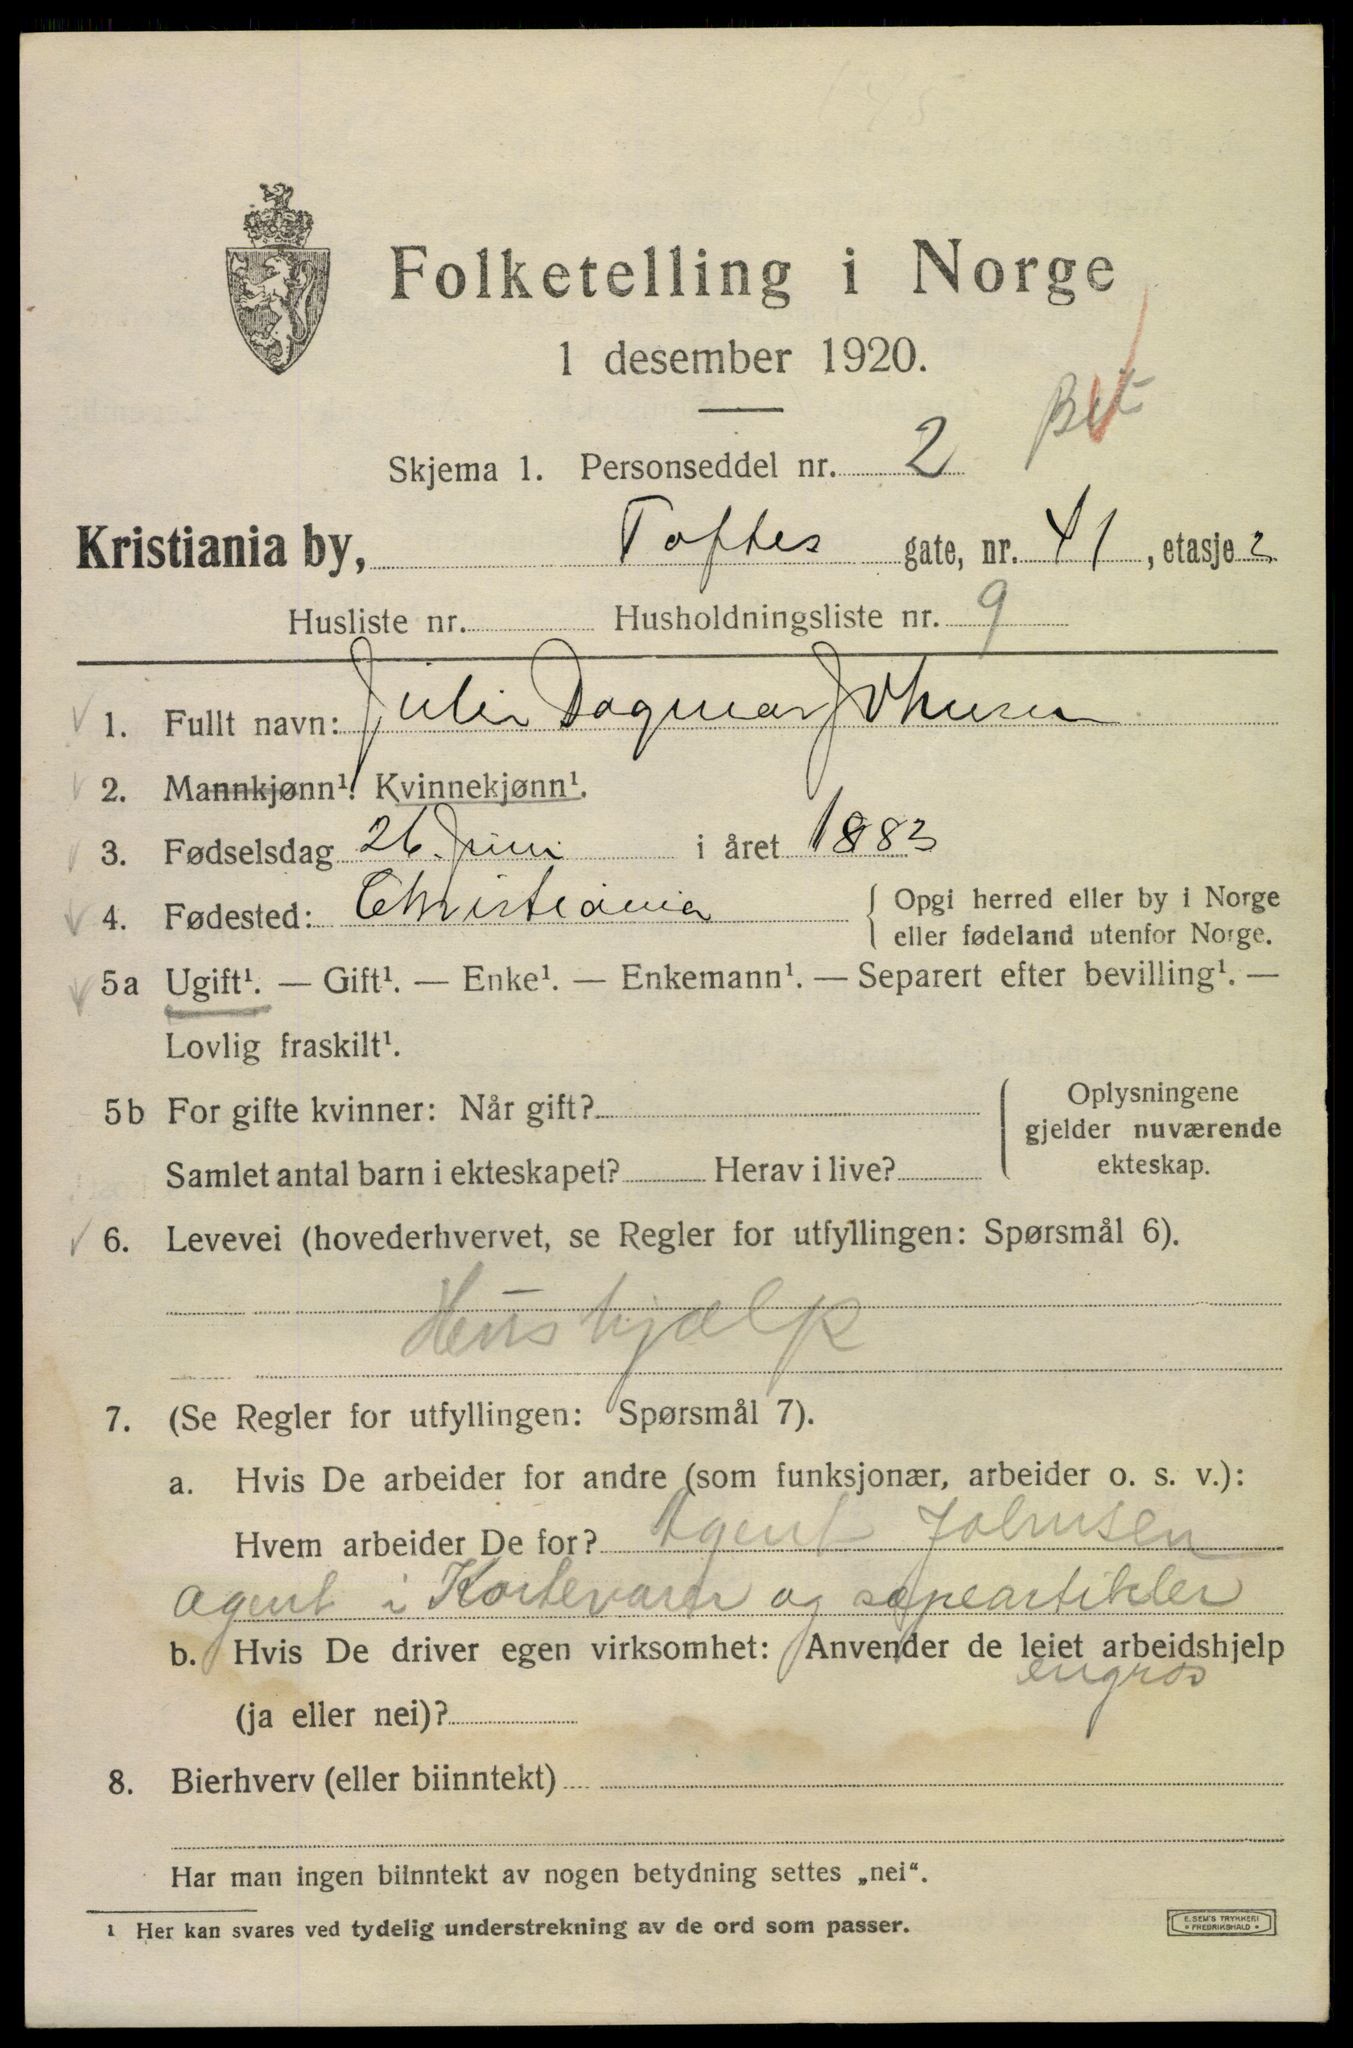 Folketelling i Norge
1 desember 1920.
Skjema 1. Personseddel nr. 2
Kristiania by, Toftes gate, nr. 41, etasje 2
Husliste nr. Husholdningsliste nr. 9
1. Fullt navn: Julie Dagmar Johnsen
2. Mannkjønn¹. Kvinnekjønn¹.
3. Fødselsdag 26 Juni i året 1883
4. Fødested: Christiania { Opgi herred eller by i Norge
eller fødeland utenfor Norge.
5a Ugift¹. — Gift¹. — Enke¹. — Enkemann¹. — Separert efter bevilling¹. —
Lovlig fraskilt¹.
5b For gifte kvinner: Når gift? { Oplysningene
gjelder nuværende
ekteskap.
Samlet antal barn i ekteskapet? Herav i live?
6. Levevei (hovederhvervet, se Regler for utfyllingen: Spørsmål 6).
Hushjælp
7. (Se Regler for utfyllingen: Spørsmål 7).
a. Hvis De arbeider for andre (som funksjonær, arbeider o. s. v.):
Hvem arbeider De for? Agent Johnsen
agent i Kortevarer og sæpeartikler
engros
b. Hvis De driver egen virksomhet: Anvender de leiet arbeidshjelp
(ja eller nei)?
8. Bierhverv (eller biinntekt)
Har man ingen biinntekt av nogen betydning settes „nei“.
¹ Her kan svares ved tydelig understrekning av de ord som passer.
E. SEM'S TRYKKERI
FREDRIKSHALD